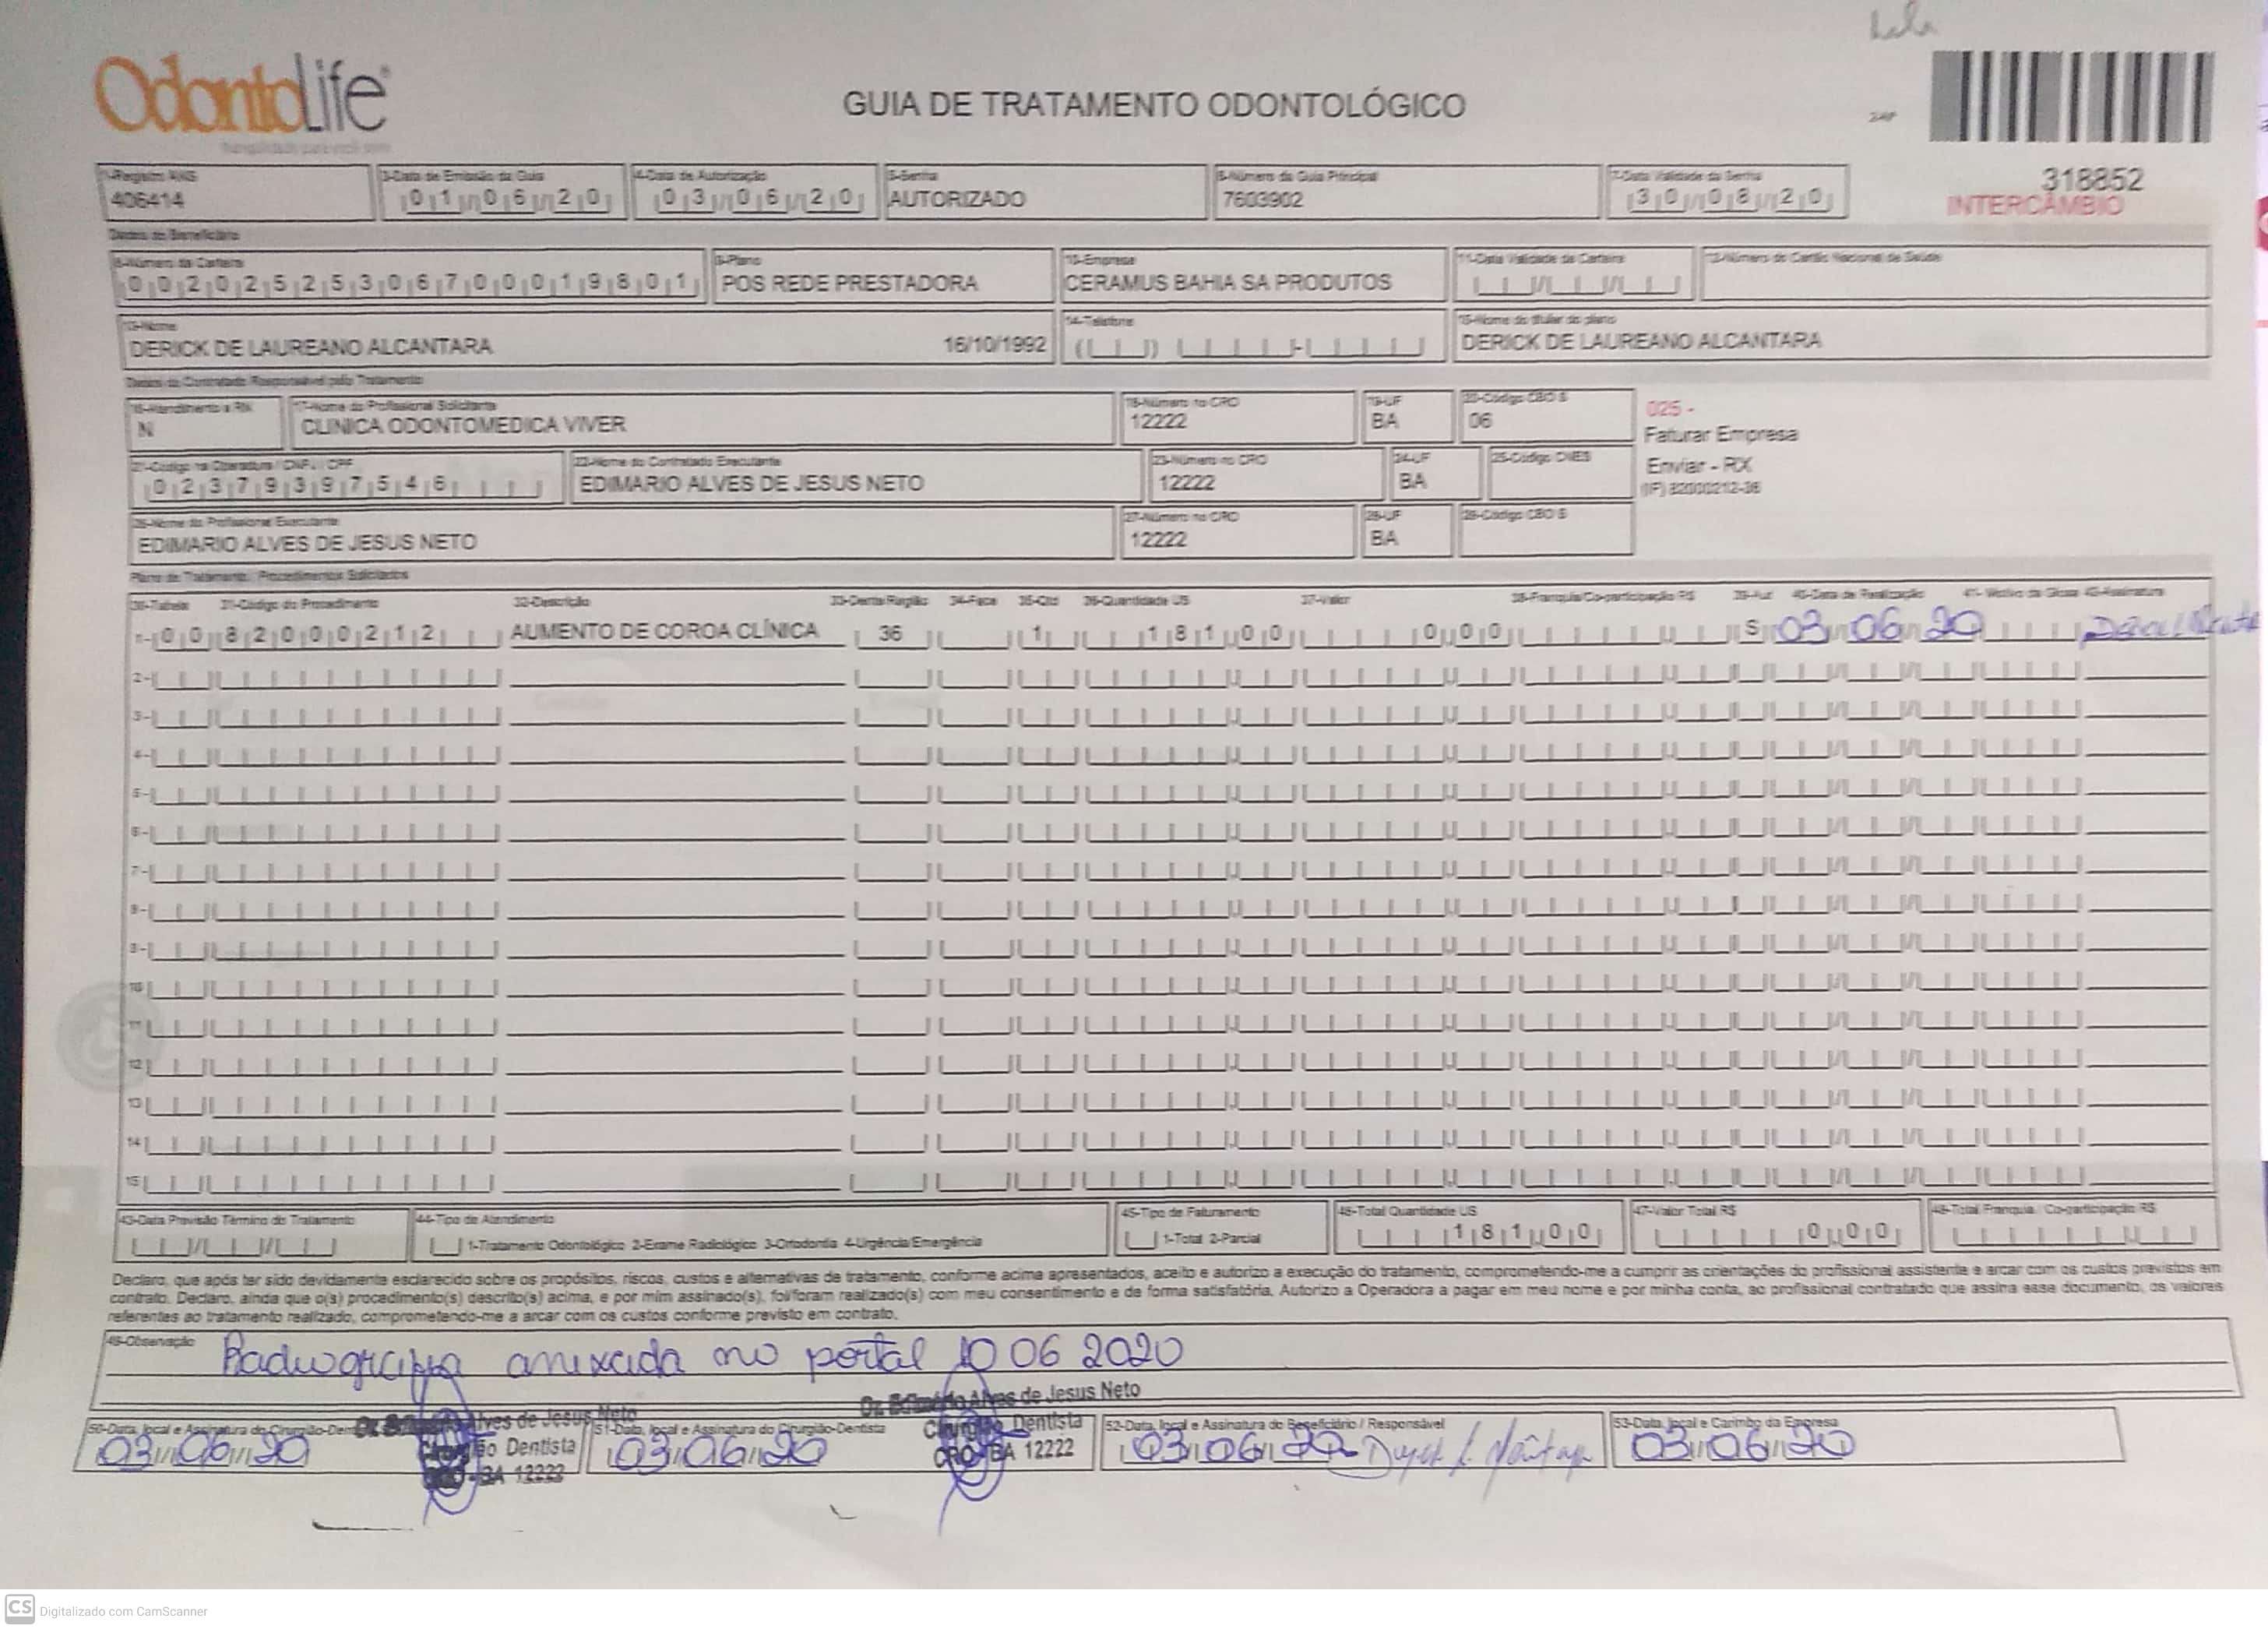 OdontoLife
GUIA DE TRATAMENTO ODONTOLÓGICO
1-Registro ANS
406414
3-Data de Emissão da Guia
01/06/20
4-Data de Autorização
03/06/20
5-Senha
AUTORIZADO
6-Número da Guia Principal
7603902
7-Data Validade da Senha
30/08/20
318852
INTERCÂMBIO
Dados do Beneficiário
8-Número da Carteira
00202525306700019801
9-Plano
POS REDE PRESTADORA
10-Empresa
CERAMUS BAHIA SA PRODUTOS
11-Data Validade da Carteira
12-Número do Cartão Nacional de Saúde
13-Nome
DERICK DE LAUREANO ALCANTARA 16/10/1992
14-Telefone
15-Nome do titular do plano
DERICK DE LAUREANO ALCANTARA
Dados do Contratado Responsável pelo Tratamento
16-Atendimento a RN
N
17-Nome do Profissional Solicitante
CLINICA ODONTOMEDICA VIVER
18-Número no CRO
12222
19-UF
BA
20-Código CBO S
06
025 -
Faturar Empresa
Enviar - RX
(IF) 82000212-36
21-Código na Operadora / CNPJ / CPF
02379397546
22-Nome do Contratado Executante
EDIMARIO ALVES DE JESUS NETO
23-Número no CRO
12222
24-UF
BA
25-Código CNES
26-Nome do Profissional Executante
EDIMARIO ALVES DE JESUS NETO
27-Número no CRO
12222
28-UF
BA
29-Código CBO S
Plano de Tratamento / Procedimentos Solicitados
30-Tabela 31-Código do Procedimento 32-Descrição 33-Dente/Região 34-Face 35-Qtd 36-Quantidade US 37-Valor 38-Franquia/Co-participação R$ 39-Aut 40-Data de Realização 41- Motivo da Glosa 42-Assinatura
1- 00 82000212 AUMENTO DE COROA CLÍNICA 36 1 181,00 0,00 S 03/06/20
2-
3-
4-
5-
6-
7-
8-
9-
10
11
12
13
14
15
43-Data Previsão Término do Tratamento
44-Tipo de Atendimento
1-Tratamento Odontológico 2-Exame Radiológico 3-Ortodontia 4-Urgência/Emergência
45-Tipo de Faturamento
1-Total 2-Parcial
46-Total Quantidade US
181,00
47-Valor Total R$
0,00
48-Total Franquia / Co-participação R$
Declaro, que após ter sido devidamente esclarecido sobre os propósitos, riscos, custos e alternativas de tratamento, conforme acima apresentados, aceito e autorizo a execução do tratamento, comprometendo-me a cumprir as orientações do profissional assistente e arcar com os custos previstos em
contrato. Declaro, ainda que o(s) procedimento(s) descrito(s) acima, e por mim assinado(s), foi/foram realizado(s) com meu consentimento e de forma satisfatória. Autorizo a Operadora a pagar em meu nome e por minha conta, ao profissional contratado que assina esse documento, os valores
referentes ao tratamento realizado, comprometendo-me a arcar com os custos conforme previsto em contrato.
49-Observação
Radiografia anexada no portal 10 06 2020
50-Data, local e Assinatura do Cirurgião-Dentista
03/06/20
Alves de Jesus Neto
Cirurgião Dentista
CRO - BA 12222
51-Data, local e Assinatura do Cirurgião-Dentista
03/06/20
Dr. Edimário Alves de Jesus Neto
Cirurgião Dentista
CRO - BA 12222
52-Data, local e Assinatura do Beneficiário / Responsável
03/06/20
53-Data, local e Carimbo da Empresa
03/06/20
CS Digitalizado com CamScanner